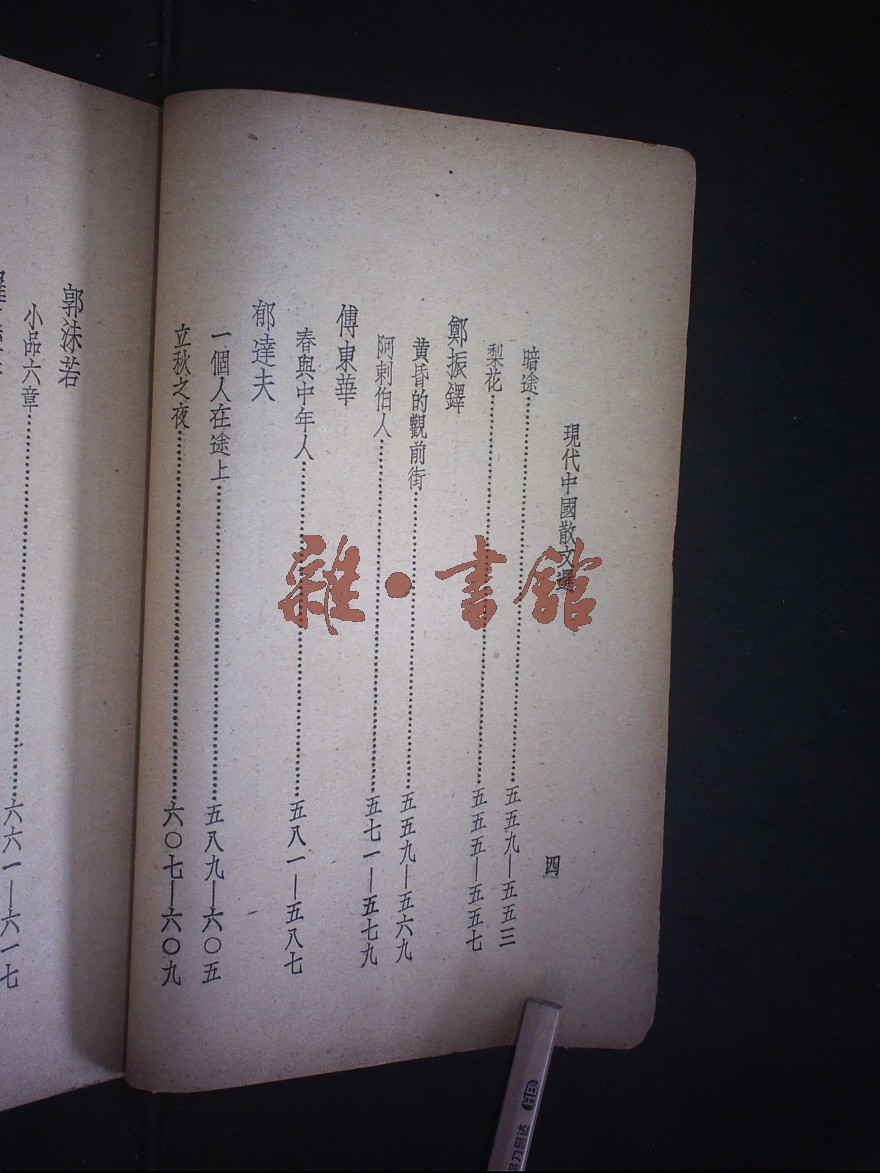 現代中國散文選
四
暗途……五五九—五五三
梨花……五五五—五五七
鄭振鐸
黄昏的觀前街……五五九—五六九
阿剌伯人……五七一—五七九
傅東華
春與中年人……五八一—五八七
郁達夫
一個人在途上……五八九—六〇五
立秋之夜……六〇七—六〇九
郭沫若
小品六章……六六一—六一七
雜·書館
HB